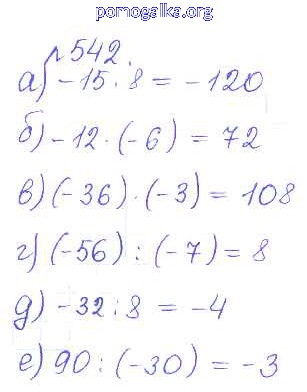 pomogalka.org
№ 542.
а) -15 · 8 = -120
б) -12 · (-6) = 72
в) (-36) · (-3) = 108
г) (-56) : (-7) = 8
д) -32 : 8 = -4
е) 90 : (-30) = -3